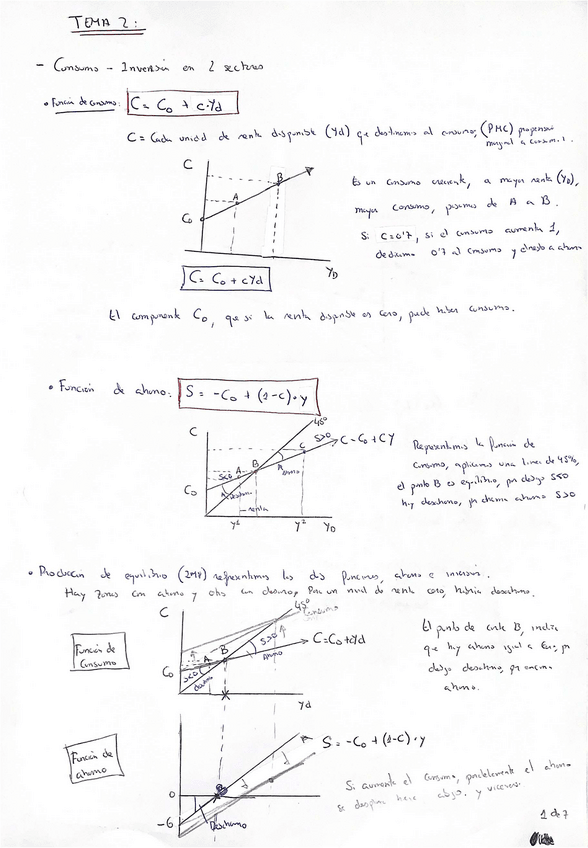 TEMA 2:
- Consumo - Inversión en 2 sectores
• Función de consumo: C = C₀ + c·Yd
C = Cada unidad de renta disponible (Yd) que destinamos al consumo, (PMC) propensión
marginal a consumir.
C
B
A
C₀
Y_D
C = C₀ + cYd
Es un consumo creciente, a mayor renta (Y_D),
mayor consumo, pasamos de A a B.
Si C=0'7, si el consumo aumenta 1,
dedicamos 0'7 al consumo y el resto a ahorro
El componente C₀, que si la renta disponible es cero, puede haber consumo.
• Función de ahorro: S = -C₀ + (1-c)·y
C
45º
S>0
C = C₀ + CY
C
B
A
S<0
Ahorro
C₀
desahorro
renta
y¹
y²
Y_D
Representamos la función de
consumo, aplicamos una linea de 45%,
el punto B es equilibrio, por debajo S<0
hay desahorro, por encima ahorro S>0
• Producción de equilibrio (2M8) representamos las dos funciones, ahorro e inversión.
Hay zonas con ahorro y otras con desahorro, Para un nivel de renta cero, habría desahorro.
Función de
Consumo
C
45º
Consumo
C = C₀ + cYd
B
A
S>0
Ahorro
S<0
C₀
Yd
El punto de corte B, indica
que hay ahorro igual a cero, por
debajo desahorro, por encima
ahorro.
Función de
ahorro
S = -C₀ + (1-C)·y
B
0
-6
Desahorro
Si aumenta el consumo, paralelamente el ahorro
se desplaza hacia abajo. y viceversa
1 de 7